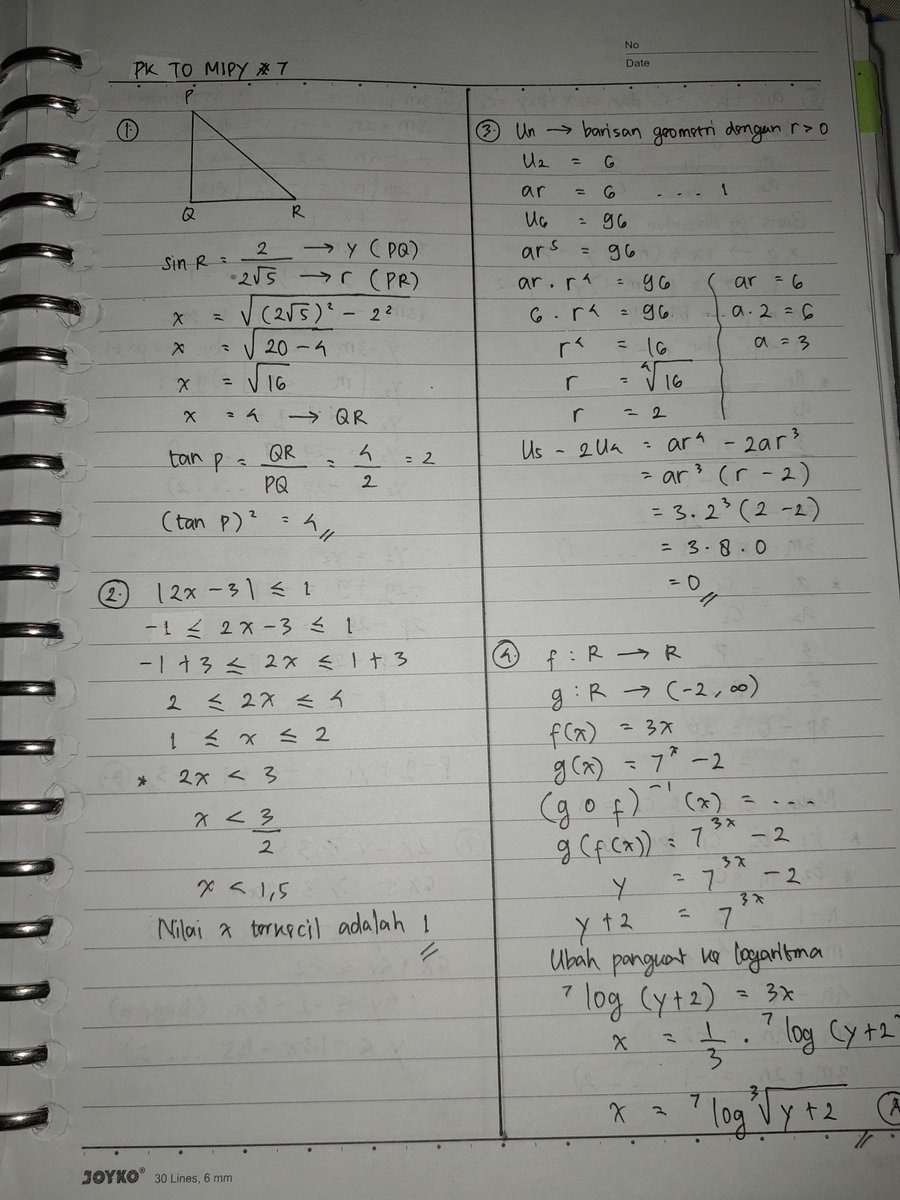 No
Date
PK TO MIPY # 7
1.
P
Q R
sin R = 2/2√5 → y (PQ) → r (PR)
x = √(2√5)² - 2²
x = √20 - 4
x = √16
x = 4 → QR
tan P = QR/PQ = 4/2 = 2
(tan P)² = 4 //
2. |2x - 3| ≤ 1
-1 ≤ 2x - 3 ≤ 1
-1 + 3 ≤ 2x ≤ 1 + 3
2 ≤ 2x ≤ 4
1 ≤ x ≤ 2
* 2x < 3
x < 3/2
x < 1,5
Nilai x terkecil adalah 1 //
3. Un → barisan geometri dengan r > 0
U2 = 6
ar = 6 .... 1
U6 = 96
ar⁵ = 96
ar . r⁴ = 96
6 . r⁴ = 96
r⁴ = 16
r = ⁴√16
r = 2
ar = 6
a . 2 = 6
a = 3
U5 - 2U4 = ar⁴ - 2ar³
= ar³ (r - 2)
= 3 . 2³ (2 - 2)
= 3 . 8 . 0
= 0 //
4. f : R → R
g : R → (-2, ∞)
f(x) = 3x
g(x) = 7ˣ - 2
(g o f)⁻¹ (x) = ....
g(f(x)) = 7³ˣ - 2
y = 7³ˣ - 2
y + 2 = 7³ˣ
Ubah pangkat ke logaritma
⁷log (y+2) = 3x
x = 1/3 . ⁷log (y+2)
x = ⁷log ³√y + 2 // A
JOYKO® 30 Lines, 6 mm